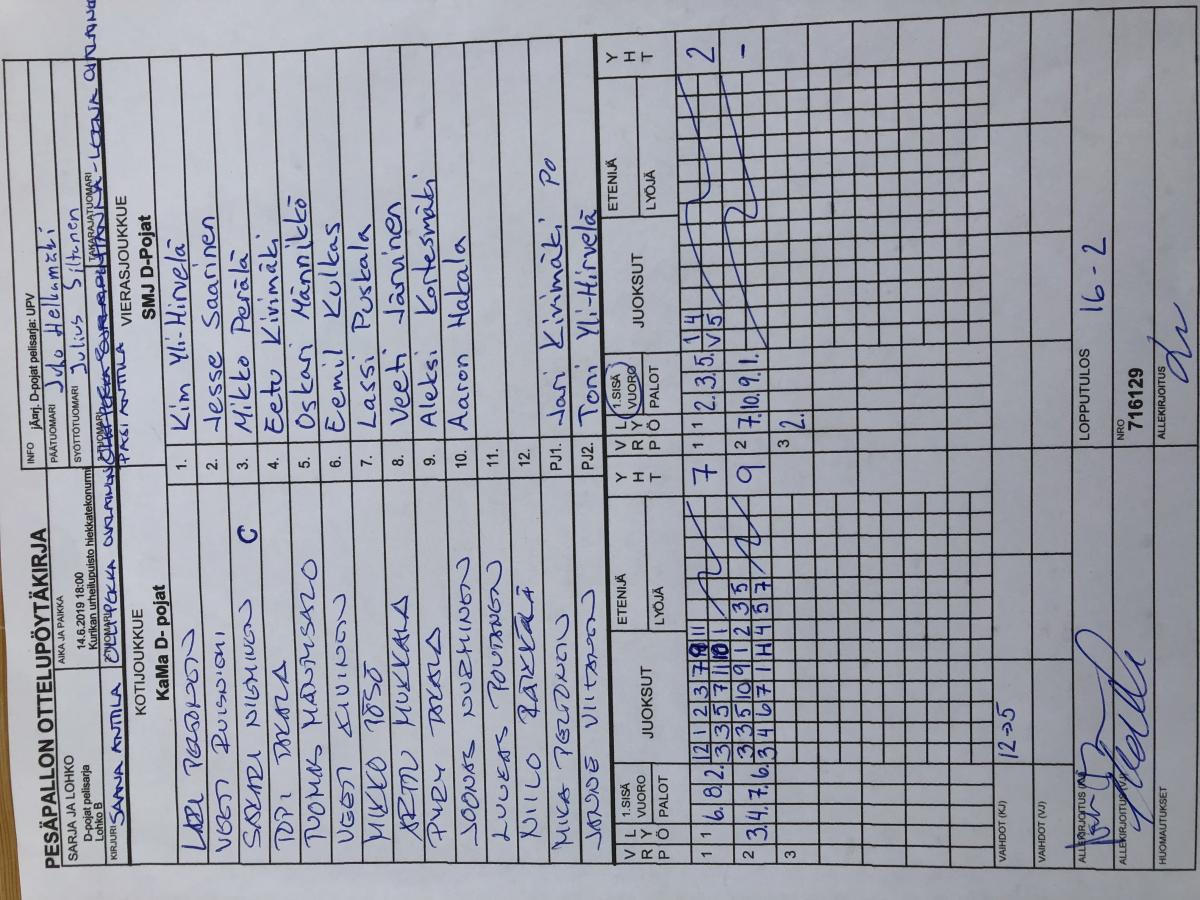 PESÄPALLON OTTELUPÖYTÄKIRJA
SARJA JA LOHKO
D-pojat pelisarja
Lohko B
AIKA JA PAIKKA
14.6.2019 18:00
Kurikan urheilupuisto hiekkatekonurmi
INFO jÄrnj. D-pojat pelisarja: UPV
PÄÄTUOMARI Juho Hellamäki
SYÖTTÖTUOMARI Julius Siltanen
TAKARAJATUOMARI
KIRJURI SAANA ANTILA
PASI ANTILA
KOTIJOUKKUE
KaMa D- pojat
VIERASJOUKKUE
SMJ D-Pojat
1. Kim Yli-Hirvelä
2. Jesse Saarinen
SAKARI NIEMINEN C 3. Mikko Perälä
TOPI TAKALA 4. Eetu Kivimäki
TUOMAS MÄNNUSALO 5. Oskari Männikkö
VEETI KIVINEN 6. Eemil Kulkas
MIKKO PÖSÖ 7. Lassi Puskala
ARTTU MUKKALA 8. Veeti Järvinen
TAKALA 9. Aleksi Kortesmäki
JOONAS NURMINEN 10. Aaron Hakala
LUUKAS POUTANEN 11.
NIILO RÄKKÖLÄ 12.
MIKA PELTONEN PJ1. Jari Kivimäki Po
JANNE VIITANEN PJ2. Toni Yli-Hirvelä
V R P L Y Ö 1.SISÄ VUORO PALOT JUOKSUT ETENIJÄ LYÖJÄ Y H T
V R P L Y Ö 1.SISÄ VUORO PALOT JUOKSUT ETENIJÄ LYÖJÄ Y H T
1 1 6. 8. 2. 7
1 1 2. 3. 5. 1 4 V 5 2
2 3. 4. 7. 6. 3 3 5 10 9 1 2 3 5 3 4 6 7 1 4 4 5 7 9
2 7. 10. 9. 1. -
3
3 2.
VAIHDOT (KJ) 12→5
VAIHDOT (VJ)
ALLEKIRJOITUS (KJ)
LOPPUTULOS 16 - 2
ALLEKIRJOITUS (VJ)
NRO
716129
HUOMAUTUKSET
ALLEKIRJOITUS